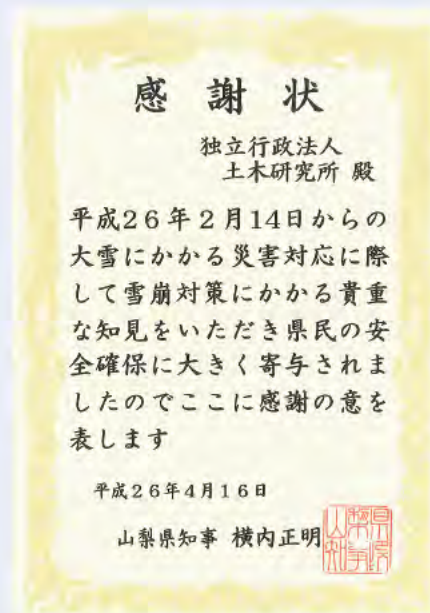 感謝状
独立行政法人
土木研究所 殿
平成26年2月14日からの
大雪にかかる災害対応に際
して雪崩対策にかかる貴重
な知見をいただき県民の安
全確保に大きく寄与されま
したのでここに感謝の意を
表します
平成26年4月16日
山梨県知事 横内正明